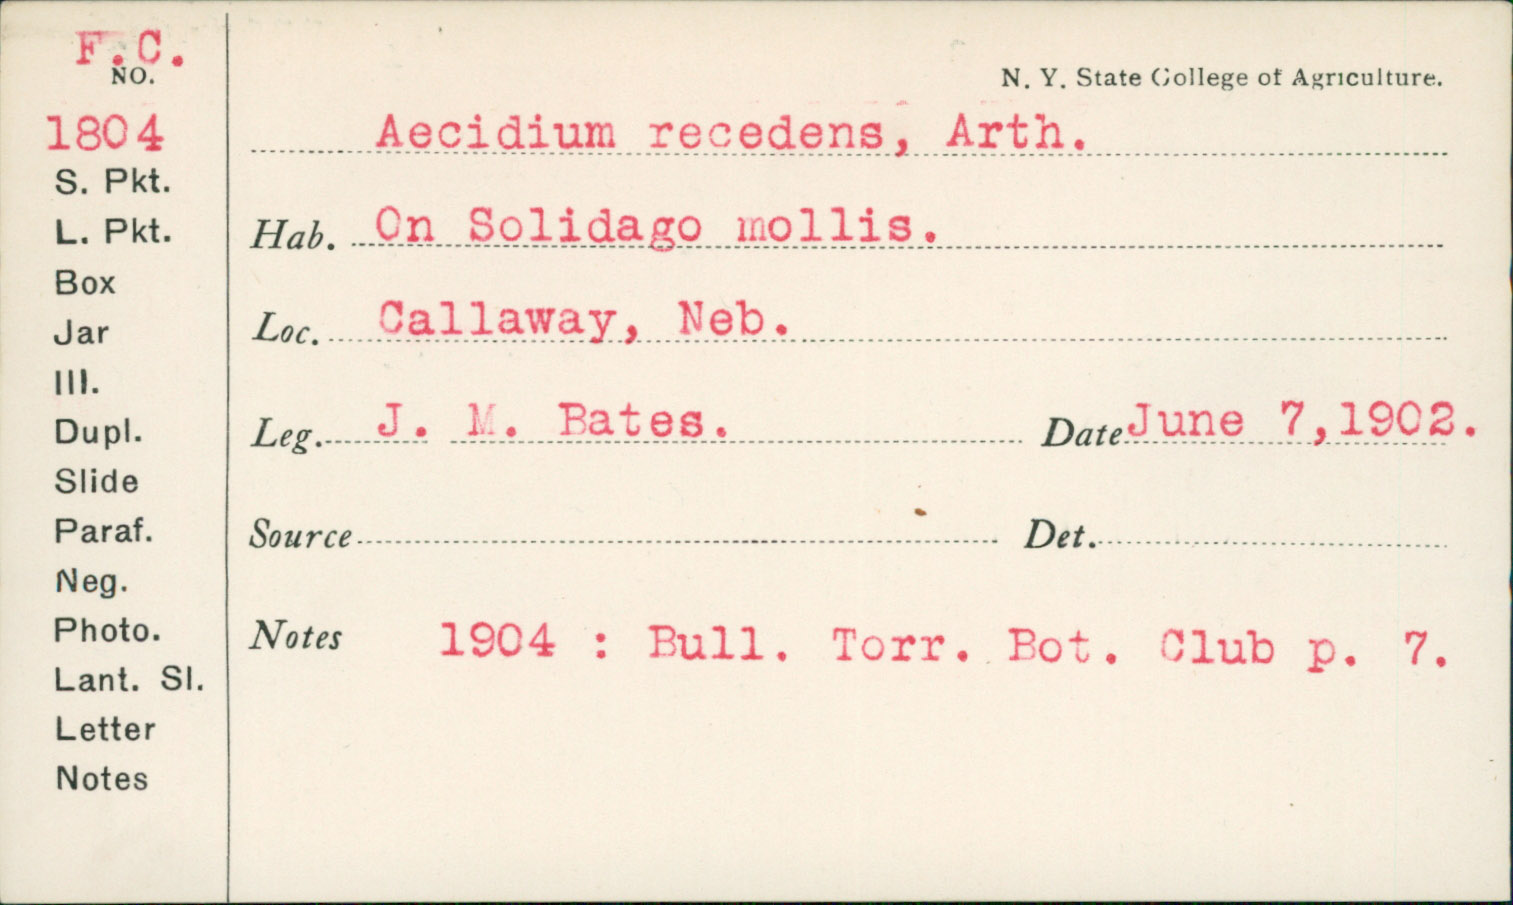 F.C.
NO.
1804
S. Pkt.
L. Pkt.
Box
Jar
Ill.
Dupl.
Slide
Paraf.
Neg.
Photo.
Lant. Sl.
Letter
Notes
N. Y. State College of Agriculture.
Aecidium recedens, Arth.
Hab. On Solidago mollis.
Loc. Callaway, Neb.
Leg. J. M. Bates. Date June 7,1902.
Source Det.
Notes 1904 : Bull. Torr. Bot. Club p. 7.